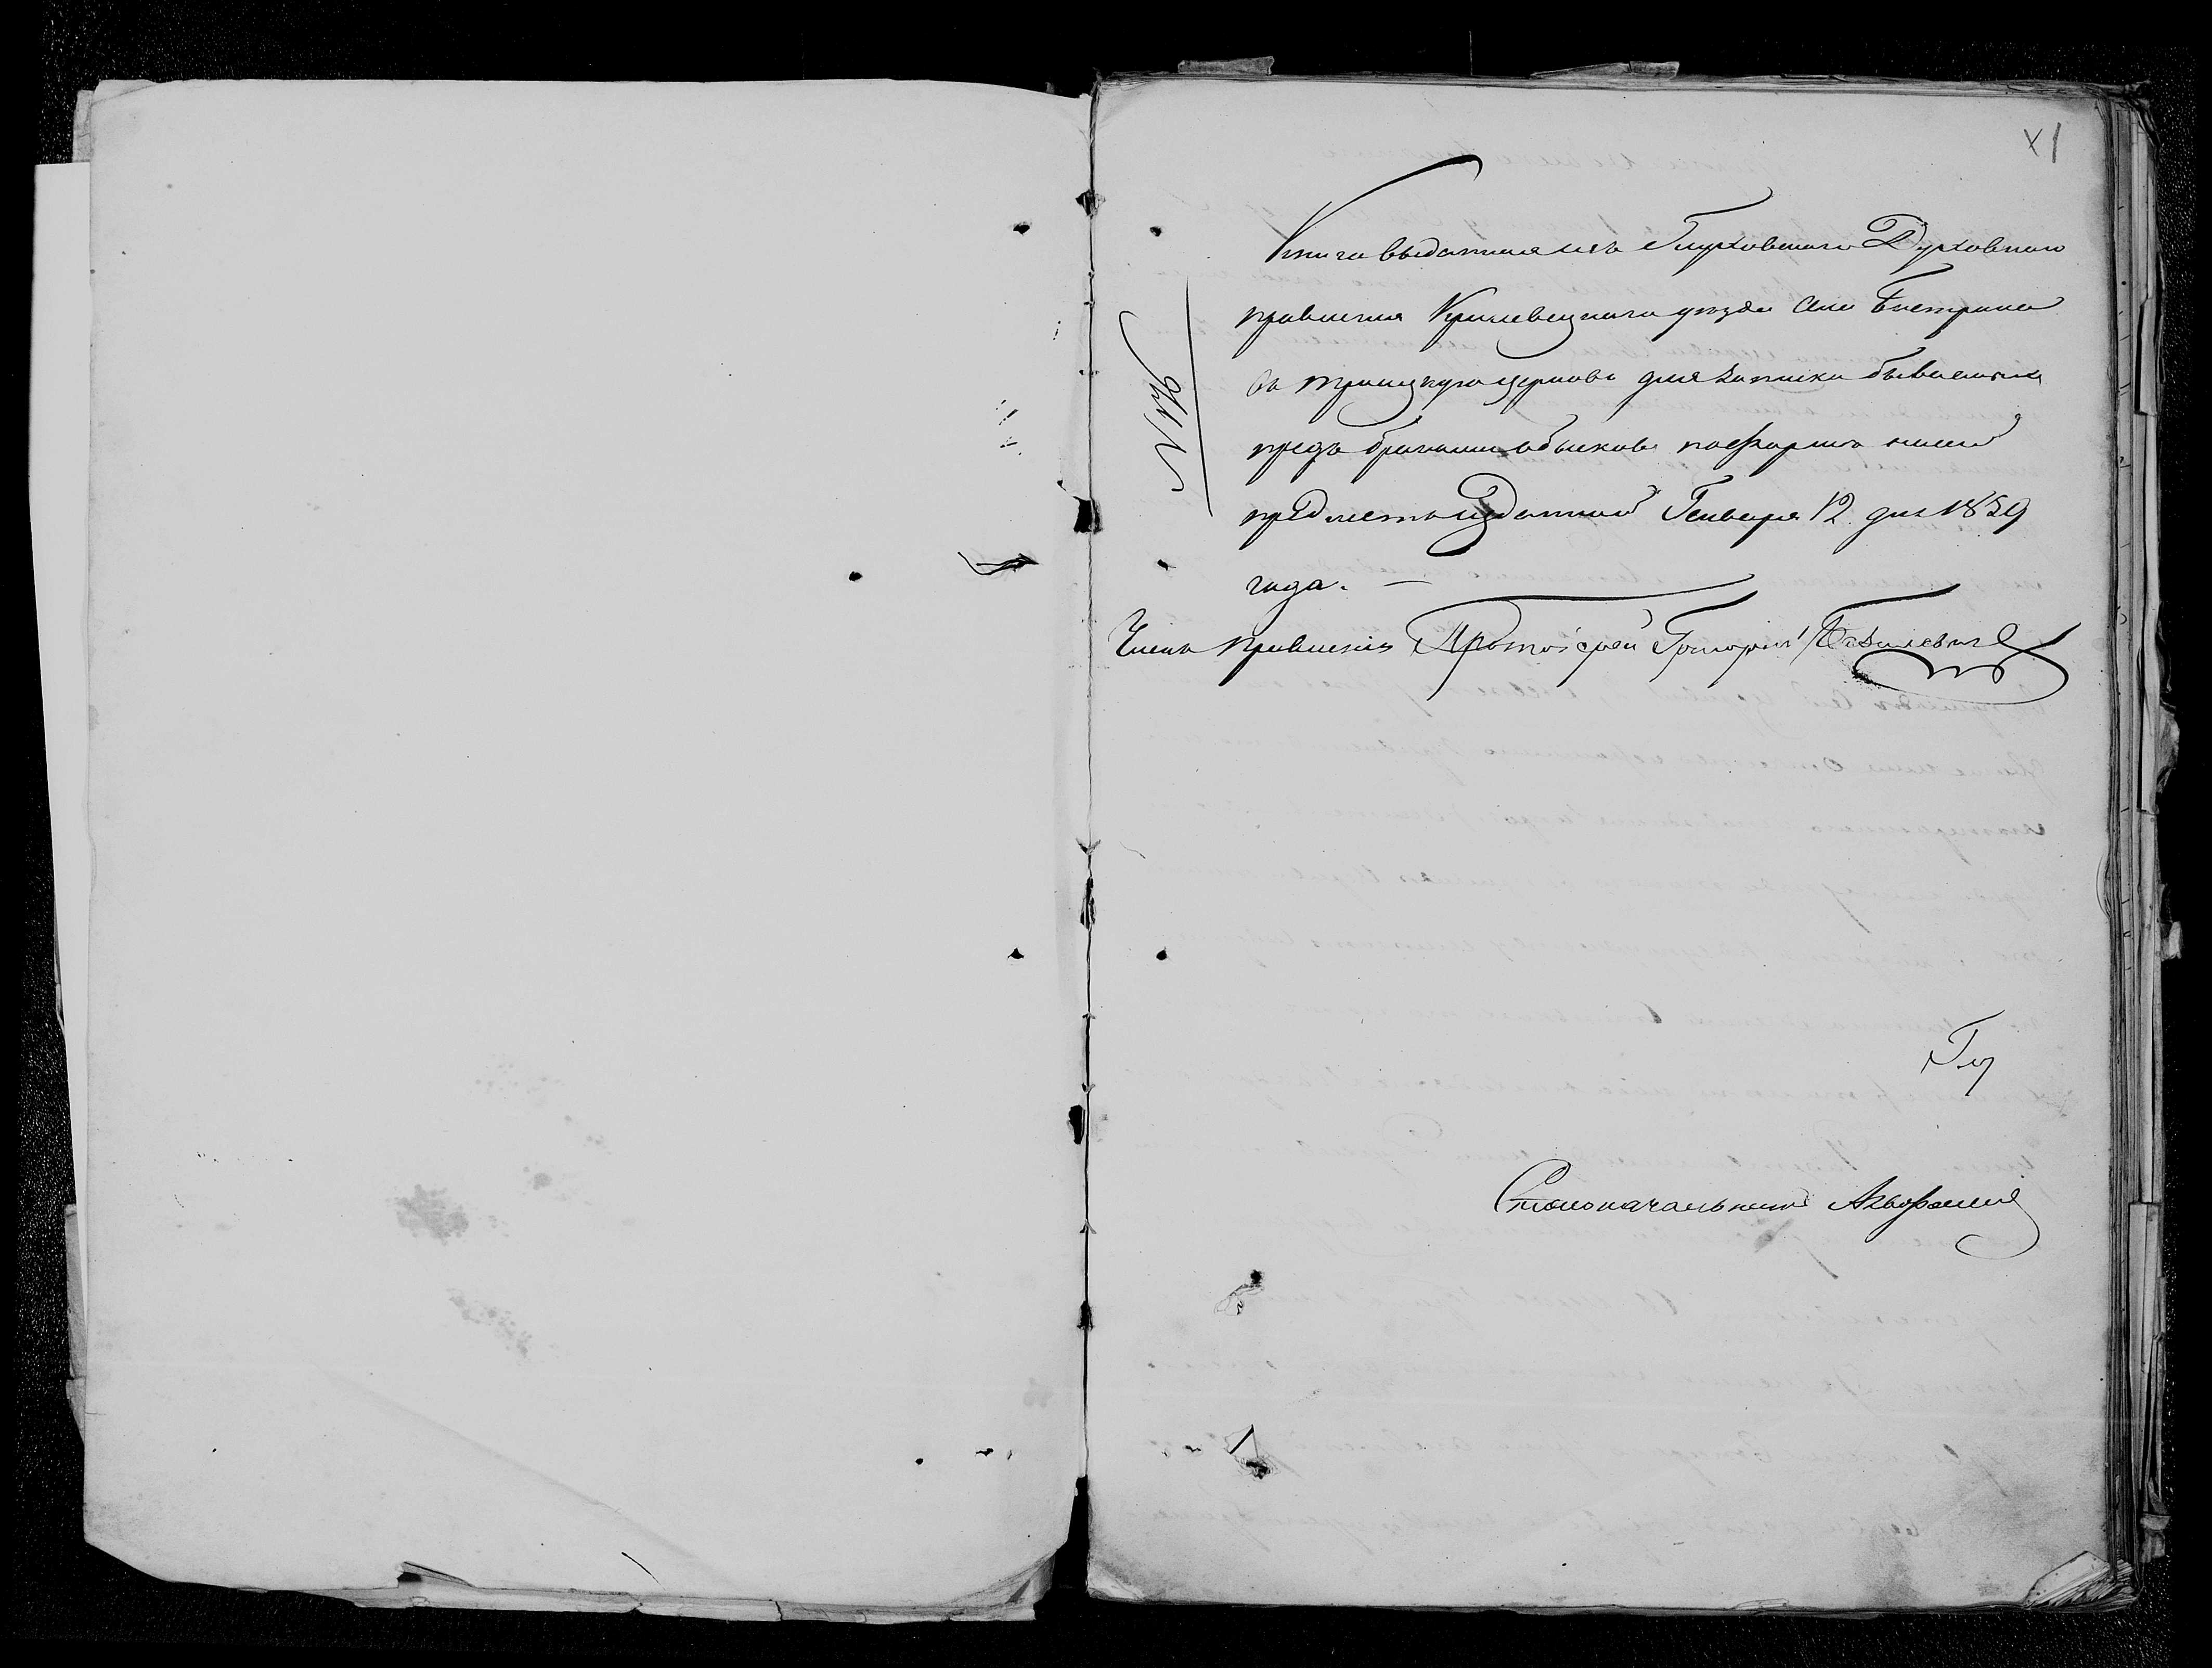 1
№ 76
Книга выданная изъ Глуховскаго Духовнаго
правления Кролевецкаго уезда села Быстрика
въ троицкую церковь для записки бываемыхъ
предъ браками обысков по форме на сей
предметъ изданной Генваря 12 дня 1839
года. —
Членъ правления Протоіерей Григорій
Гл
Столоначальникъ